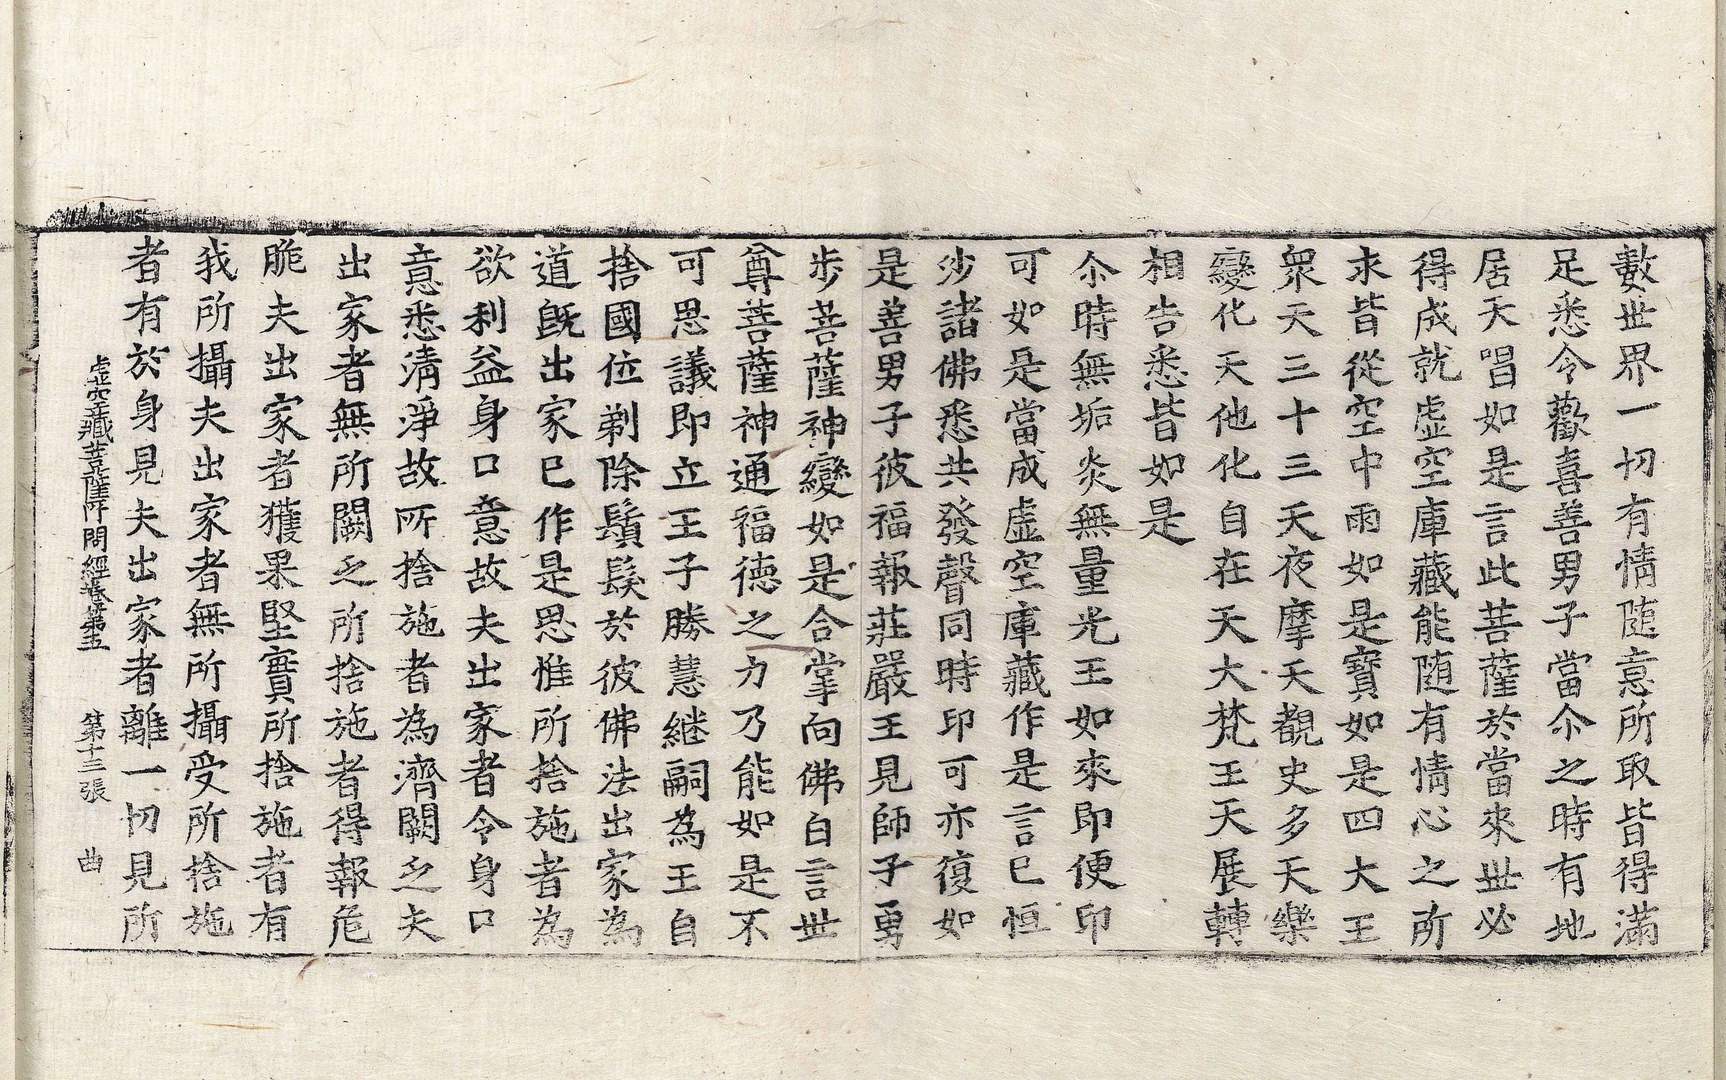 數世界一切有情随意所取皆得滿
足悉令歡喜善男子當尒之時有地
居天唱如是言此菩薩於當來世必
得成就虛空庫藏能随有情心之所
求皆從空中雨如是寶如是四大王
衆天三十三天夜摩天覩史多天樂
變化天他化自在天大梵王天展轉
相告悉皆如是
尒時無垢炎無量光王如來即便印
可如是當成虛空庫藏作是言已恒
沙諸佛悉共發聲同時印可亦復如
是善男子彼福報莊嚴王見師子勇
步菩薩神變如是合掌向佛白言世
尊菩薩神通福德之力乃能如是不
可思議即立王子勝慧継嗣為王自
捨國位剃除鬚髮於彼佛法出家為
道既出家已作是思惟所捨施者為
欲利益身口意故夫出家者令身口
意悉淸淨故所捨施者為濟闕乏夫
出家者無所闕乏所捨施者得報危
脆夫出家者獲果堅實所捨施者有
我所攝夫出家者無所攝受所捨施
者有於身見夫出家者離一切見所
虛空藏菩薩所問經卷第五 第十三張 曲